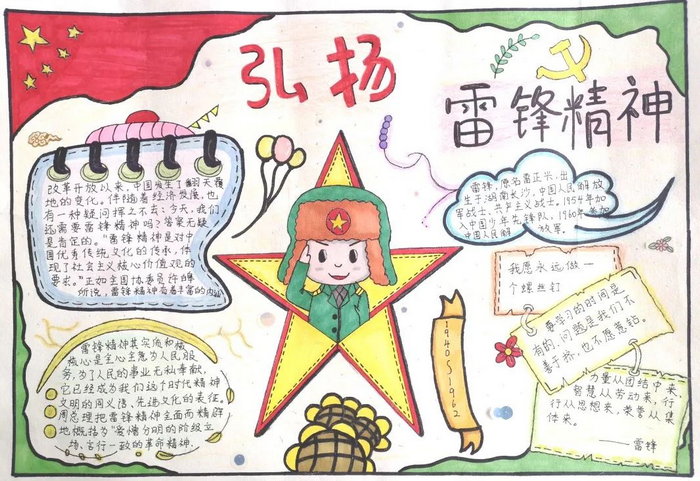 弘扬
雷锋精神
改革开放以来,中国发生了翻天覆
地的变化。伴随着经济发展,也
有一种疑问挥之不去:今天,我们
还需要雷锋精神吗?答案无疑
是肯定的。"雷锋精神是对中
国优秀传统文化的传承,体
现了社会主义核心价值观的
要求。"正如全国协委员许
所说,雷锋精神有着丰富的内涵
雷锋,原名雷正兴,出
生于湖南长沙,中国人民解放
军战士,共产主义战士。1954年加
入中国少年先锋队,1960年参加
中国人民解放军。
我愿永远做一
个螺丝钉
要学习的时间是
有的,问题是我们不
善于挤,也不愿意钻。
力量从团结中来,
智慧从劳动来,行
行从思想来,荣誉从集
体来。
——雷锋
1940~1962
雷锋精神其实质和核
核心是全心全意为人民服
务,为了人民的事业无私奉献,
它已经成为我们这个时代精神
文明的同义语、先进文化的表征。
周总理把雷锋精神全面而精辟
地概括为"爱憎分明的阶级立
场、言行一致的革命精神,